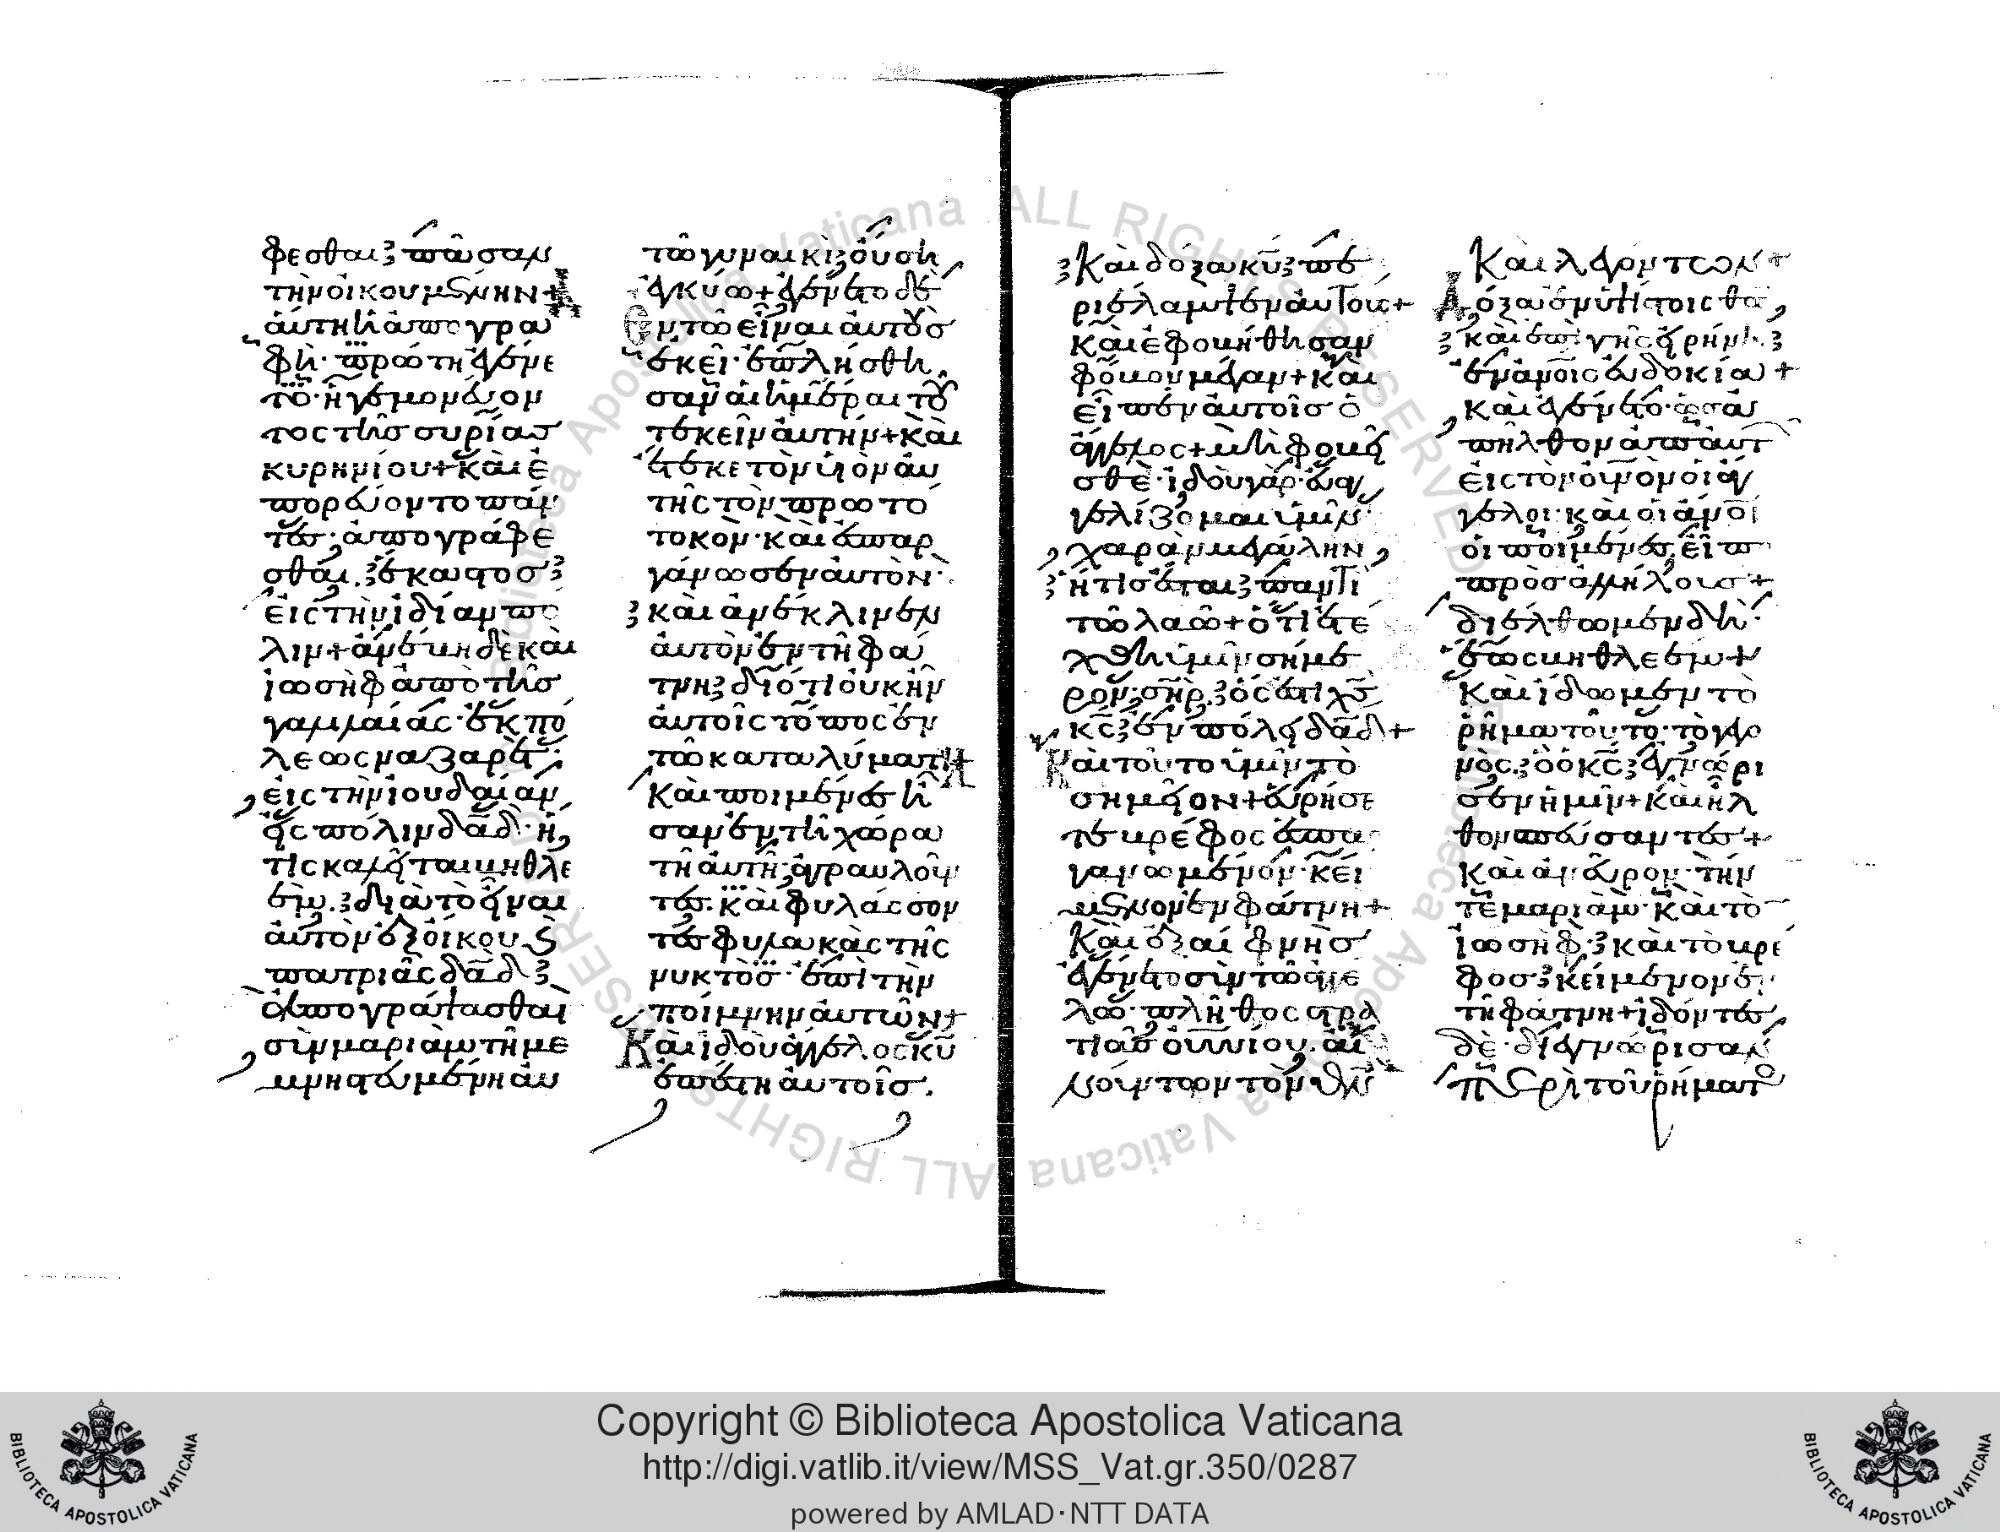 φεσθαι πᾶσαν
τὴν οἰκουμένην + Α
ἁύτη ἡ ἀπογρα
φὴ· πρώτη ἐγένε
το· ἡγεμονεύον
τος τῆς συρίας
κυρηνίου + καὶ ἐ
πορεύοντο πάν
τες· ἀπογράφε
σθαι. ἕκαστος
εἰς τὴν ἰδίαν πό
λιν + ἀνέβη δὲ καὶ
ἰωσὴφ ἀπὸ τῆς
γαλιλαίας· ἐκ πό
λεως ναζαρὲτ·
εἰς τὴν ἰουδαίαν
εἰς πόλιν δᾱδ· ἥ
τις καλεῖται βηθλε
έμ. διὰ τὸ εἶναι
αὐτὸν ἐξ οἴκου ϗ
πατριᾶς δᾱδ
ἀπογράψασθαι
σὺν μαριὰμ τῆ με
μνηστευμένη αὐ
τῶ γυναικὶ· οὔση
ἐγκύω + ἐγένετο δὲ
ἐν τῶ εἶναι αὐτοὺς
ἐκεῖ· ἐπλήσθη
σαν αἱ ἡμέραι τοῦ
τεκεῖν αὐτήν + καὶ
ἔτεκε τὸν υἱὸν αὐ
τῆς τὸν πρωτό
τοκον· καὶ ἐσπαρ
γάνωσεν αὐτὸν·
καὶ ἀνέκλινεν
αὐτὸν ἐν τῆ φά
τνη· διότι οὐκ ἦν
αὐτοῖς τόπος ἐν
τῶ καταλύματι + Κ
Καὶ ποιμένες ἦ
σαν ἐν τῆ χώρα
τῆ αὐτῆ· ἀγραυλοῦν
τες· καὶ φυλάσσον
τες φυλακὰς τῆς
νυκτὸς· ἐπὶ τὴν
ποίμνην αὐτῶν +
Καὶ ἰδοὺ ἄγγελος κ̄υ
ἐπέστη αὐτοῖς.
Καὶ δόξα κ̄υ πε
ριέλαμψεν αὐτοὺς +
καὶ ἐφοβήθησαν
φόβον μέγαν + καὶ
εἶπεν αὐτοῖς ὁ
ἄγγελος + μὴ φοβεῖ
σθε· ἰδοὺ γὰρ· εὐαγ
γελίζομαι ὑμῖν
χαρὰν μεγάλην
ἥτις ἔσται παντὶ
τῶ λαῶ + ὅτι ἐτέ
χθη ὑμῖν σήμε
ρον· σ̄ηρ· ὅς ἐστι χ̄ς
κ̄ς ἐν πόλει δᾱδ +
Καὶ τοῦτο ὑμῖν τὸ
σημεῖον + εὑρήσε
τε βρέφος ἐσπαρ
γανωμένον· κεί
μενον ἐν φάτνη +
Καὶ ἐξαίφνης
ἐγένετο σὺν τῶ ἀγγέ
λω· πλῆθος στρα
τιᾶς οὐνίου· αἰ
νούντων τὸν θ̄ν
Καὶ λεγόντων +
Δόξα ἐν ὑψίστοις θ̄ω
καὶ ἐπὶ γῆς εἰρήνη
ἐν ἀνοις εὐδοκία +
καὶ ἐγένετο· ὡς ἀ
πῆλθον ἀπ' αὐτ
εἰς τὸν οὐνον οἱ ἀγ
γελοι· καὶ οἱ ἄνοι
οἱ ποιμένες. εἶπ
πρὸς ἀλλήλους +
διέλθωμεν δὴ·
ἕως βηθλεέμ +
καὶ ἴδωμεν τὸ
ῥῆμα τοῦτο· τὸ γεγο
νὸς· ὃ ὁ κ̄ς ἐγνώρι
σεν ἡμῖν + καὶ ἦλ
θον σπεύσαντες +
καὶ ἀνεῦρον· τήν
τε μαριὰμ· καὶ τὸν
ἰωσὴφ· καὶ τὸ βρέ
φος κείμενον ἐν
τῆ φάτνη + ἰδόντες
δὲ· διεγνώρισαν
περὶ τοῦ ῥήματο
Copyright © Biblioteca Apostolica Vaticana
http://digi.vatlib.it/view/MSS_Vat.gr.350/0287
powered by AMLAD·NTT DATA
BIBLIOTECA APOSTOLICA VATICANA
BIBLIOTECA APOSTOLICA VATICANA